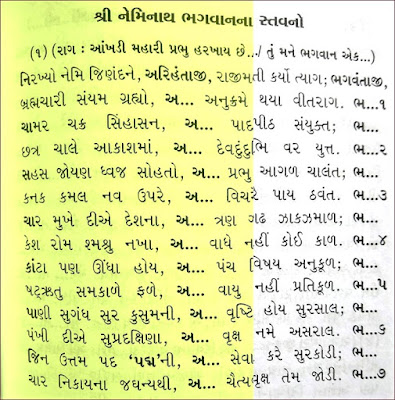 શ્રી નેમિનાથ ભગવાનના સ્તવનો
(૧) (રાગ : આંખડી મહારી પ્રભુ હરખાય છે.../ તું મને ભગવાન એક...)
નિરખ્યો નેમિ જિણંદને, અરિહંતાજી, રાજીમતી કર્યો ત્યાગ; ભગવંતાજી,
બ્રહ્મચારી સંયમ ગ્રહ્યો, અ... અનુક્રમે થયા વીતરાગ. ભ...૧
ચામર ચક્ર સિંહાસન, અ... પાદપીઠ સંયુક્ત; ભ...
છત્ર ચાલે આકાશમાં, અ... દેવદુંદુભિ વર યુત્ત. ભ...૨
સહસ જોયણ ધ્વજ સોહતો, અ... પ્રભુ આગળ ચાલંત; ભ...
કનક કમલ નવ ઉપરે, અ... વિચરે પાય ઠવંત. ભ...૩
ચાર મુખે દીએ દેશના, અ... ત્રણ ગઢ ઝાકઝમાળ; ભ...
કેશ રોમ શ્મશ્રુ નખા, અ... વાધે નહીં કોઈ કાળ. ભ...૪
કાંટા પણ ઊંધા હોય, અ... પંચ વિષય અનુકૂળ; ભ...
ષટ્ઋતુ સમકાળે ફળે, અ... વાયુ નહીં પ્રતિકૂળ. ભ...૫
પાણી સુગંધ સુર કુસુમની, અ... વૃષ્ટિ હોય સુરસાલ; ભ...
પંખી દીએ સુપ્રદક્ષિણા, અ... વૃક્ષ નમે અસરાલ. ભ...૬
જિન ઉત્તમ પદ ‘પદ્મ’ની, અ... સેવા કરે સુરકોડી; ભ...
ચાર નિકાયના જઘન્યથી, અ... ચૈત્યવૃક્ષ તેમ જોડી. ભ...૭